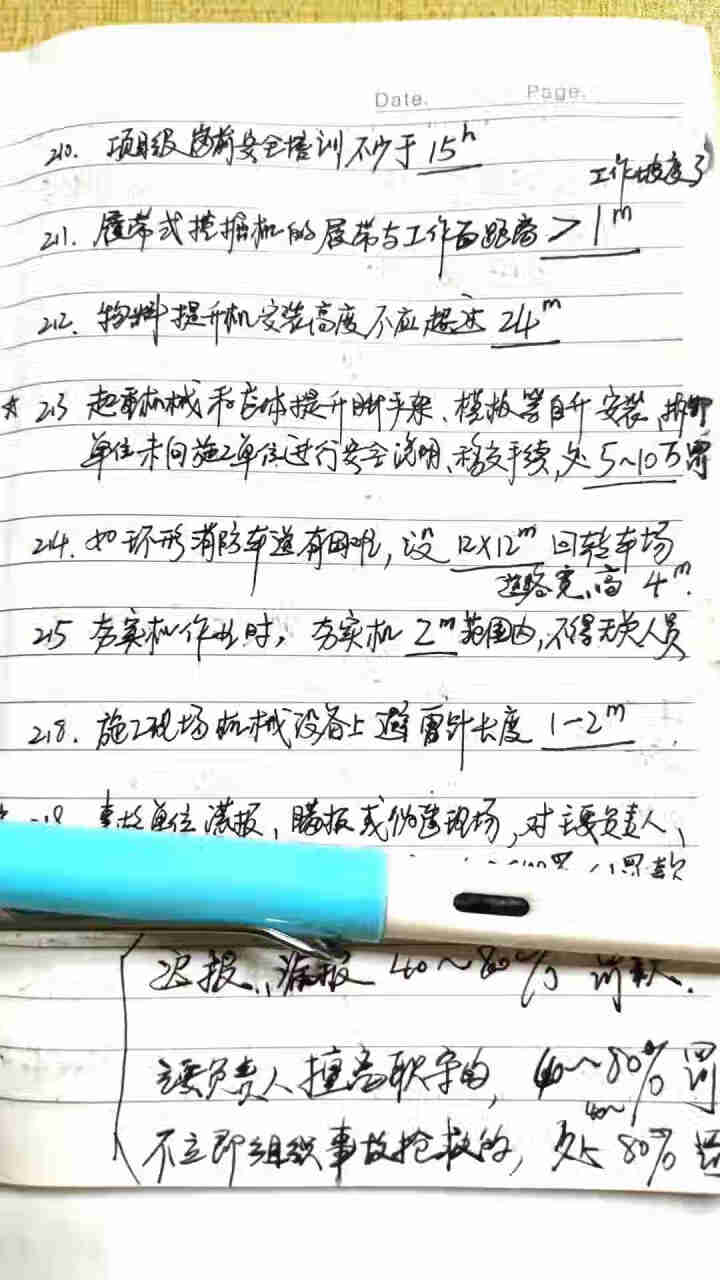 Date.    Page.
210. 项目级岗前安全培训不少于15h
工作坡度
211. 履带式挖掘机的履带与工作面距离>1m
212. 物料提升机安装高度不应超过24m
213 起重机械和总体提升脚手架、模板等自升 安装、拆卸
单位未向施工单位进行安全说明、移交手续,处5~10万罚
214. 如环形消防车道有困难,设12×12m回转车场
道路宽、高 4m.
215 夯实机作业时,夯实机2m范围内,不得无关人员
218. 施工现场机械设备上避雷针长度1-2m
事故单位谎报、瞒报或伪造现场,对主要负责人、
罚款
迟报、漏报 40~80% 罚款.
主要负责人擅离职守的, 40~80% 罚
40~
不立即组织事故抢救的, 处 80%